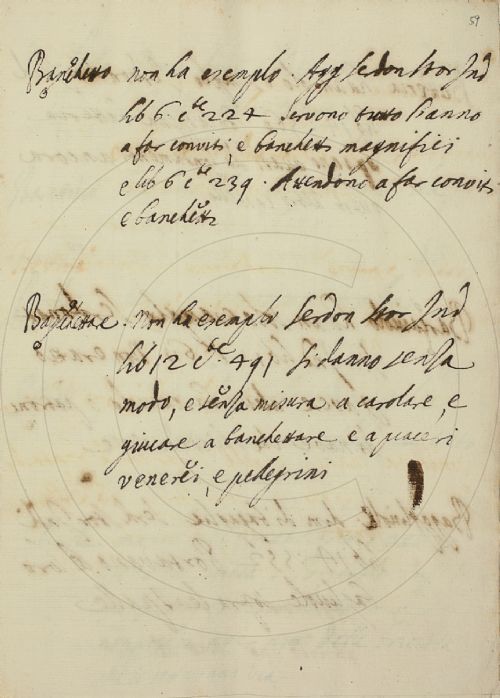 59
Banchetto non ha esempio. Agg Serdon Stor Ind
lib 6. cte 224 servono tutto l'anno
a far conviti, e banchetti magnifici
e lib 6 cte 239. Attendono a far conviti
e banchetti
Banchettare. Non ha esempio Serdon Stor Ind
lib 12 cte. 491 si danno senza
modo, e senza misura a carolare, e
giucare a banchettare e a piaceri
venerei, e pelegrini